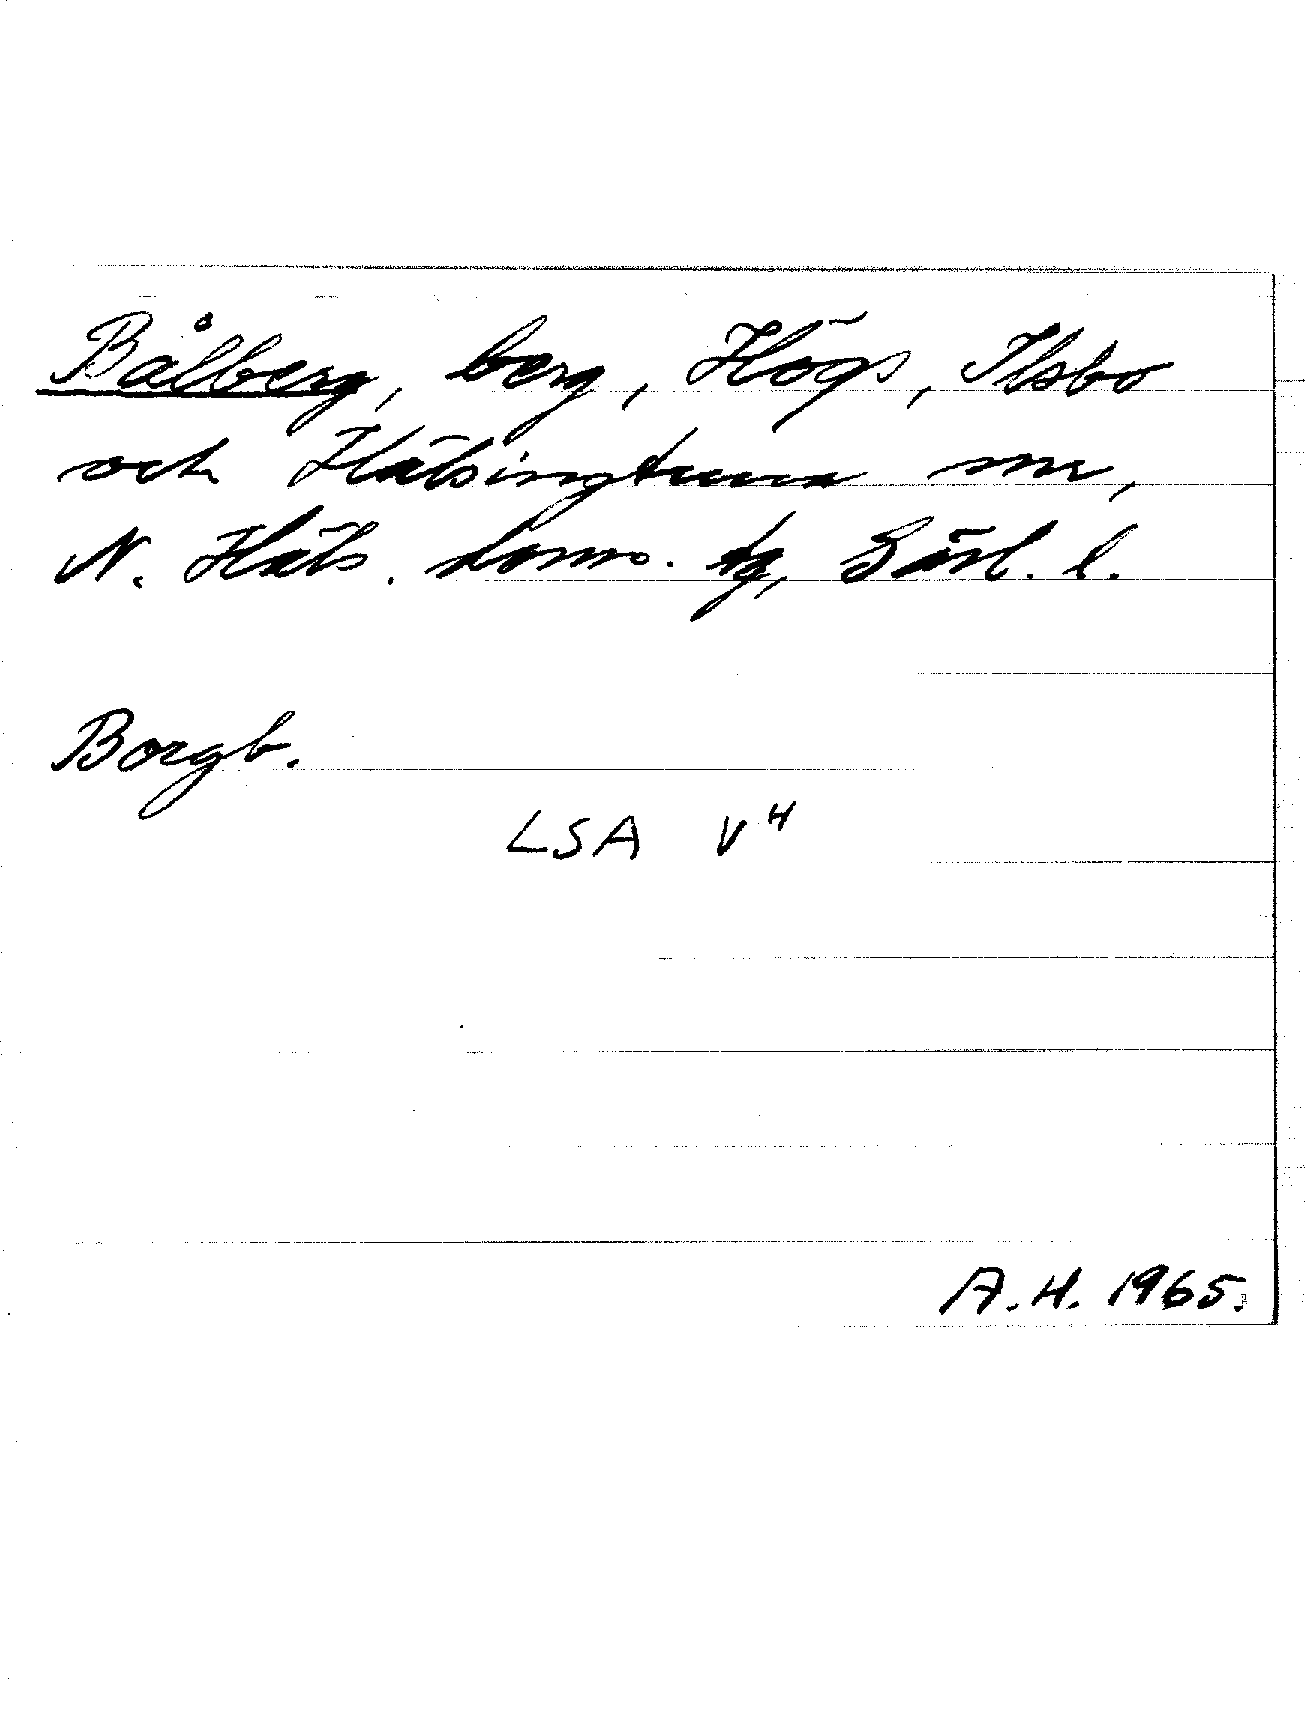 Bålberg, berg, Högs, Ilsbo
och Hälsingtuna snr,
N. Häls. doms. tg, Gävl. l.
Borgb.
LSA V⁴
A.H. 1965.